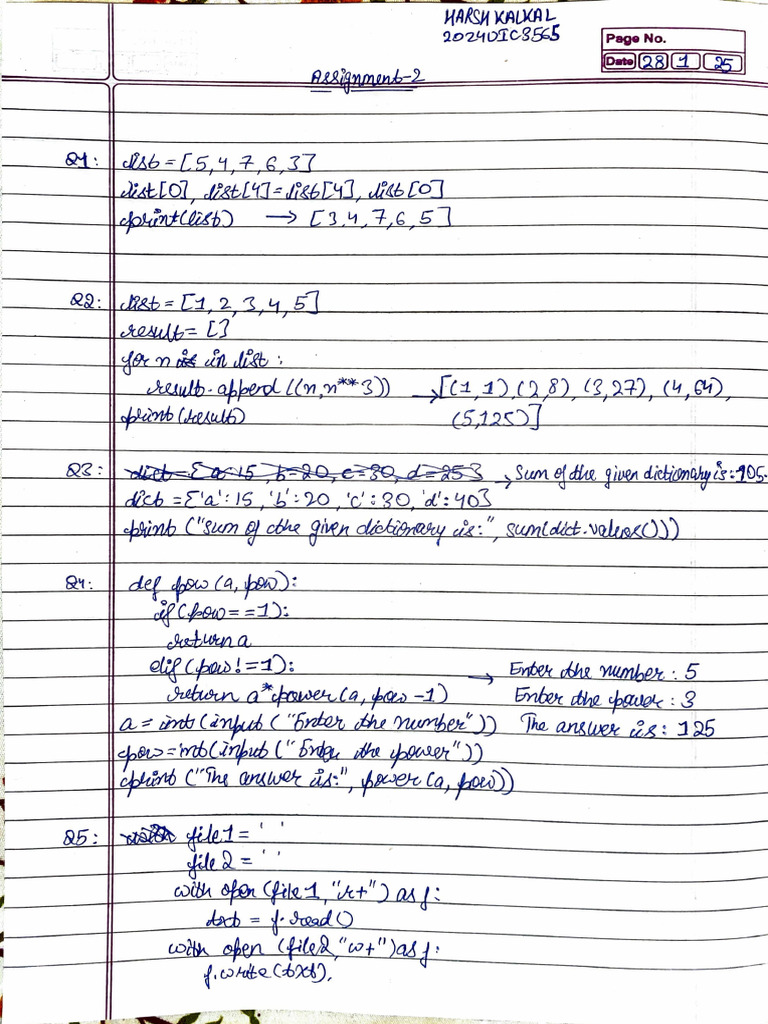 HARSH KALKAL
2024UIC3565
Page No.
Date 28 1 25
Assignment-2
Q1: list = [5,4,7,6,3]
list[0], list[4] = list[4], list[0]
print(list) → [3,4,7,6,5]
Q2: list = [1, 2, 3, 4, 5]
result = []
for n in list :
result.append((n, n**3)) → [(1, 1), (2, 8), (3, 27), (4, 64),
print(result) (5,125)]
Q3: dict = {a=15, b=20, c=30, d=25} → Sum of the given dictionary is:105.
dict = {'a':15, 'b':20, 'c':30, 'd':40}
print ("sum of the given dictionary is:", sum(dict.values()))
Q4: def pow (a, pow):
if (pow==1):
return a
elif (pow!=1): → Enter the number : 5
return a*power (a, pow-1) Enter the power : 3
a = int (input ("Enter the number")) The answer is : 125
pow=int(input ("Enter the power"))
print ("The answer is:", power (a, pow))
Q5: file1 = ' '
file 2 = ' '
with open (file 1, "r+") as f:
txt = f.read()
with open (file2, "w+") as f:
f.write(txt),